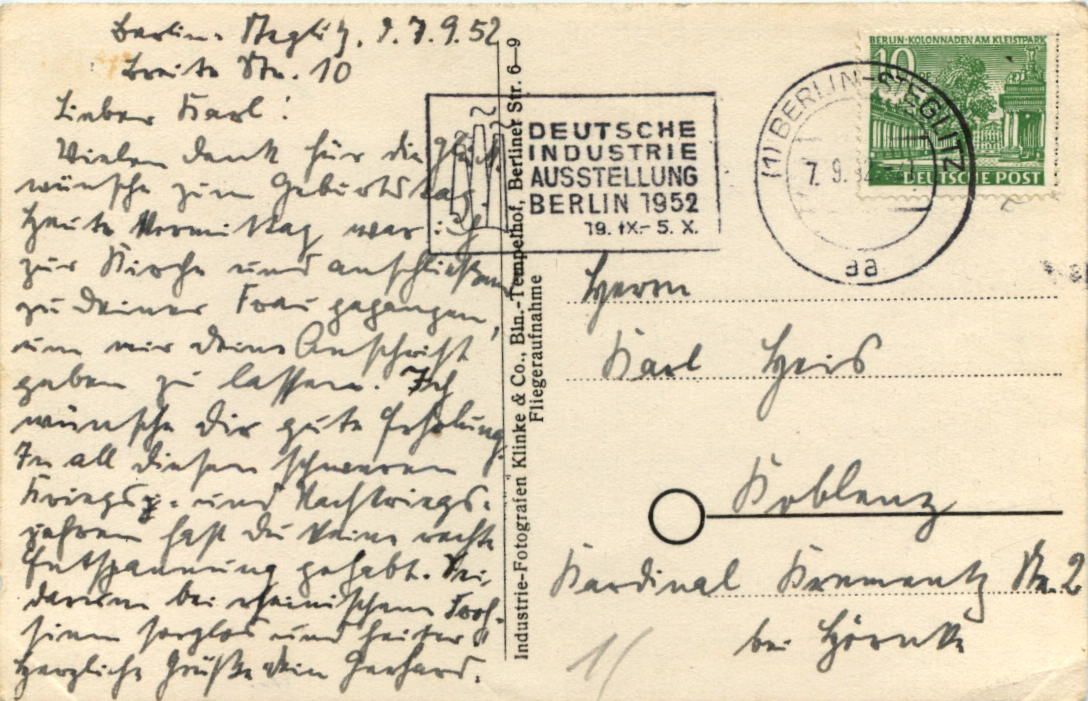 Berlin-Steglitz, d. 7.9.52
Breite Str. 10
Lieber Karl!
Vielen Dank für die Glück-
wünsche zum Geburtstag.
Heute Vormittag war ich
zur Kirche und anschließend
zu deiner Frau gegangen,
um mir deine Anschrift
geben zu lassen. Ich
wünsche dir gute Erholung.
In all diesen schweren
Kriegs- und Nachkriegs-
jahren hast du keine rechte
Entspannung gehabt. Sei
darum bei rheinischem Froh-
sinn sorglos und heiter!
Herzliche Grüße dein Gerhard.
Industrie-Fotografen Klinke & Co., Bln.-Tempelhof, Berliner Str. 6—9
Fliegeraufnahme
DEUTSCHE
INDUSTRIE
AUSSTELLUNG
BERLIN 1952
19. IX.- 5. X.
(1) BERLIN-STEGLITZ
7. 9. 52
aa
BERLIN-KOLONNADEN AM KLEISTPARK
10
DEUTSCHE POST
Herrn
Karl Heis
Koblenz
Kardinal Krementz Str. 2
bei Hörnke